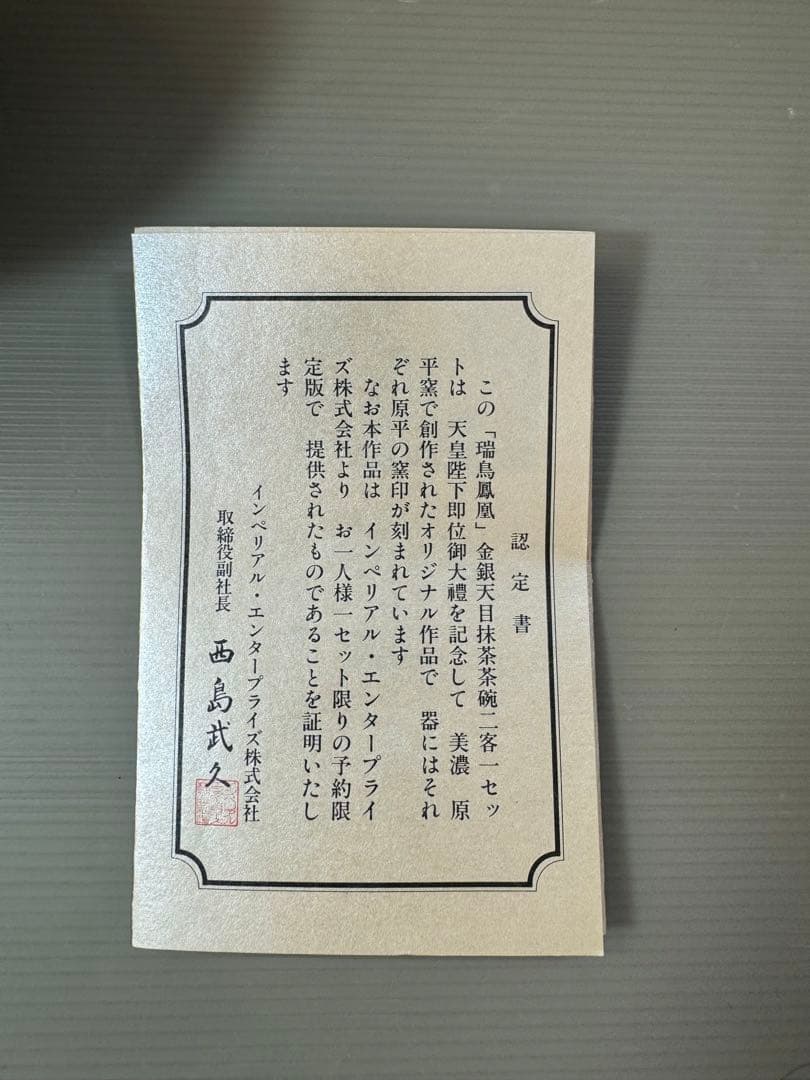 認定書
この「瑞鳥鳳凰」金銀天目抹茶茶碗二客一セッ
トは　天皇陛下即位御大禮を記念して　美濃　原
平窯で創作されたオリジナル作品で　器にはそれ
ぞれ原平の窯印が刻まれています
なお本作品は　インペリアル・エンタープライ
ズ株式会社より　お一人様一セット限りの予約限
定版で　提供されたものであることを証明いたし
ます
インペリアル・エンタープライズ株式会社
取締役副社長　西島武久